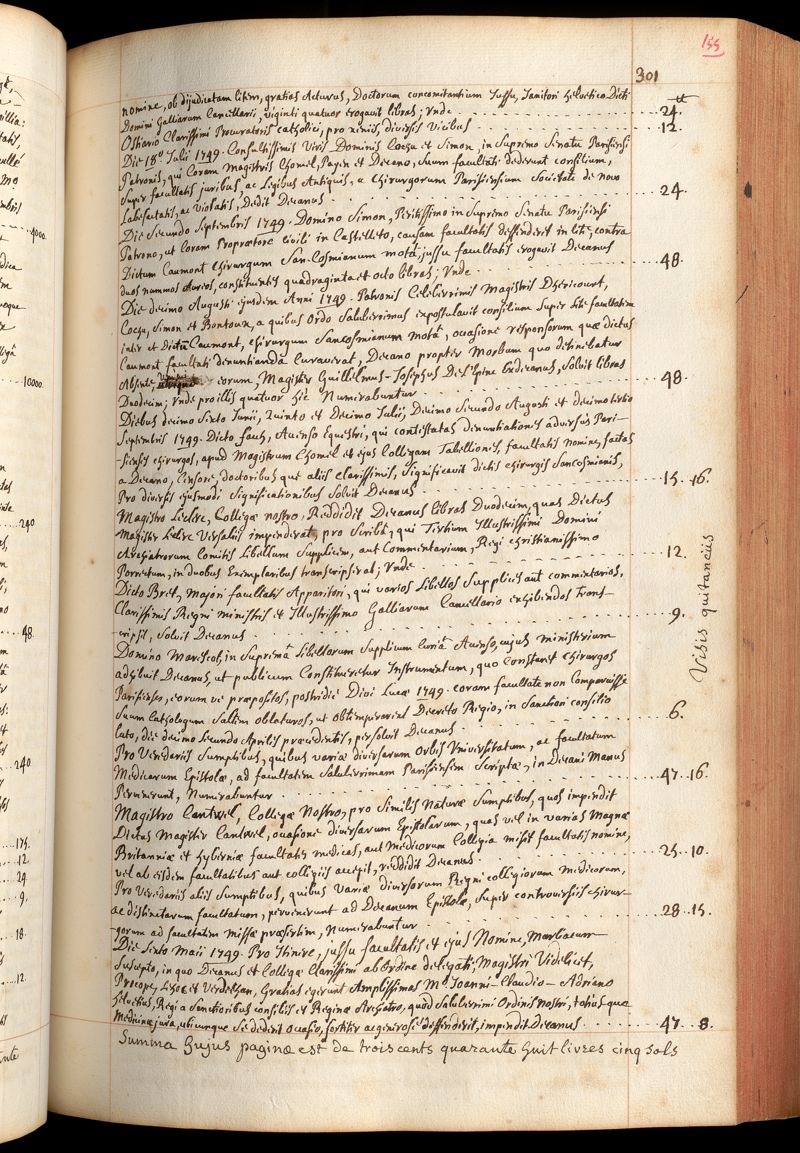 155
301
nomine, ob dijudicatam litem, gratias Acturus, Doctorum concomitantium Jussu, Janitori helvetico Dicti
Domini Galliarum Cancellarii, viginti quatuor erogavit libras; Unde 24.tt
Ostiario Clarissimi Procuratoris catholici, pro xeniis, diversis Vicibus 12.
Die 18.a Julii 1749. Consultissimis Viris Dominis Cochu et Simon, in Supremo Senatu Parisiensi
Patronis, qui Coram Magistris Chomel, Payen et Decano, Suum facultati dederunt consilium,
Super facultatis juribus, ac Legibus Antiquis, a Chirurgorum Parisiensium Societate de novo
Labefactatis, ac Violatis, Dedit Decanus 24
Die Secundo Septembris 1749. Domino Simon, Peritissimo in Supremo Senatu Parisiensi
Patrono, ut Coram Propraetore Civili in Castelleto, causam facultatis deffenderet in lite, contra
Dictum Caumont Chirurgum San-Cosmianum motâ, jussu facultatis erogavit Decanus
duos nummos Aureos, constituentes quadraginta et octo libras; Unde 48.
Die decimo Augusti ejusdem Anni 1749. Patronis Celeberrimis Magistris Dhericourt,
Cochu, Simon et Bontoux, a quibus Ordo Saluberrimus expostulavit consilium Super Lite facultatem
inter et Dictum Caumont, Chirurgum Sancosmianum Motâ, occasione responsorum quae dictus
Caumont facultati denuntianda Curaverat, Decano propter Morbum quo detinebatur
Absente, eorum, Magister Guillelmus-Josephus De L'Epine Exdecanus, Soluit libras
Duodecim; Unde pro illis quatuor hic Numerabuntur 48.
Diebus decimo Sexto Junii, Quinto et Decimo Julii, Decimo Secundo Augusti et decimo tertio
Septembris 1749. Dicto fauch, Avenso Equestri, qui contestatas denuntiationes adversùs Pari-
-sienses chirurgos, apud Magistrum Chomel et ejus Collegam Tabelliones, facultatis nomine, factas
a Decano, Censore, doctoribus que aliis clarissimis, Significavit dictis chirurgis Sancosmianis,
Pro diversis ejusmodi Significationibus Soluit Decanus 15..16.
Magistro Leclerc, Collegae nostro, Reddidit Decanus libras Duodecim, quas Dictus
Magister Leclerc Versaliis impenderat, pro Scribâ, qui Tertium Illustrissimi Domini
Archiatrorum Comitis Libellum Supplicem, aut Commentarium, Regi Christianissimo
Porrectum, in duobus Exemplaribus transcripserat; Unde 12.
Dicto Bret, Majori facultatis Apparitori, qui varios Libellos Supplices aut commentarios,
Clarissimis Regni ministris et Illustrissimo Galliarum Cancellario exhibendos trans-
-cripsit, Soluit Decanus 9.
Domino Marescot, in Supremâ Libellorum Supplicum Curiâ Avenso, cujus ministerium
adhibuit Decanus, ut publicum Constitueretur Instrumentum, quo Constaret Chirurgos
Parisienses, eorum ve praepositos, postridie Divi Lucae 1749. coram facultate non Comparuisse
Suum Catalogum Saltem oblaturos, ut obtemperarent Decreto Regio, in Sanctiori consilio
lato, die decimo Secundo Aprilis praecedentis, persoluit Decanus 6.
Pro Veredariis Sumptibus, quibus variae diversarum Orbis Universitatum, ac facultatum
Medicarum Epistolae, ad facultatem Saluberrimam Parisiensem Scriptae, in Decani Manus
Pervenerunt, Numerabuntur 47..16.
Magistro Cantwel, Collegae Nostro, pro Similis Naturae Sumptibus, quos impendit
Dictus Magister Cantwel, occasione diversarum Epistolarum, quas vel in varias Magnae
Britanniae et hyberniae facultates medicas, aut Medicorum Collegia misit facultatis nomine,
vel ab eisdem facultatibus aut collegiis accepit, reddidit Decanus 25..10.
Pro Veredariis aliis Sumptibus, quibus variae diversorum Regni collegiorum medicorum,
ac distinctarum facultatum, pervenerunt ad Decanum Epistolae, Super controversiis chirur-
-gorum ad facultatem missae praesertim, Numerabuntur 28..15.
Die Sexto Maii 1749. Pro Itinere, jussu facultatis et ejus Nomine,
Suscepto, in quo Decanus et Collegae Clarissimi ab Ordine delegati, Magistri Videlicet,
Procope, et Verdelhan, Gratias egerunt Amplissimo M.o Joanni-Claudio-Adriano
helvetius, Regi a Sanctioribus consiliis et Reginae Archiatro, quod Saluberrimi Ordinis Nostri, totius que
Medicinae jura, ubicunque Se dederit occasio, fortiter ac generosè deffenderit, impendit Decanus 47..8.
Summa hujus paginae est de trois cents quarante huit livres cinq sols
Visis quitanciis